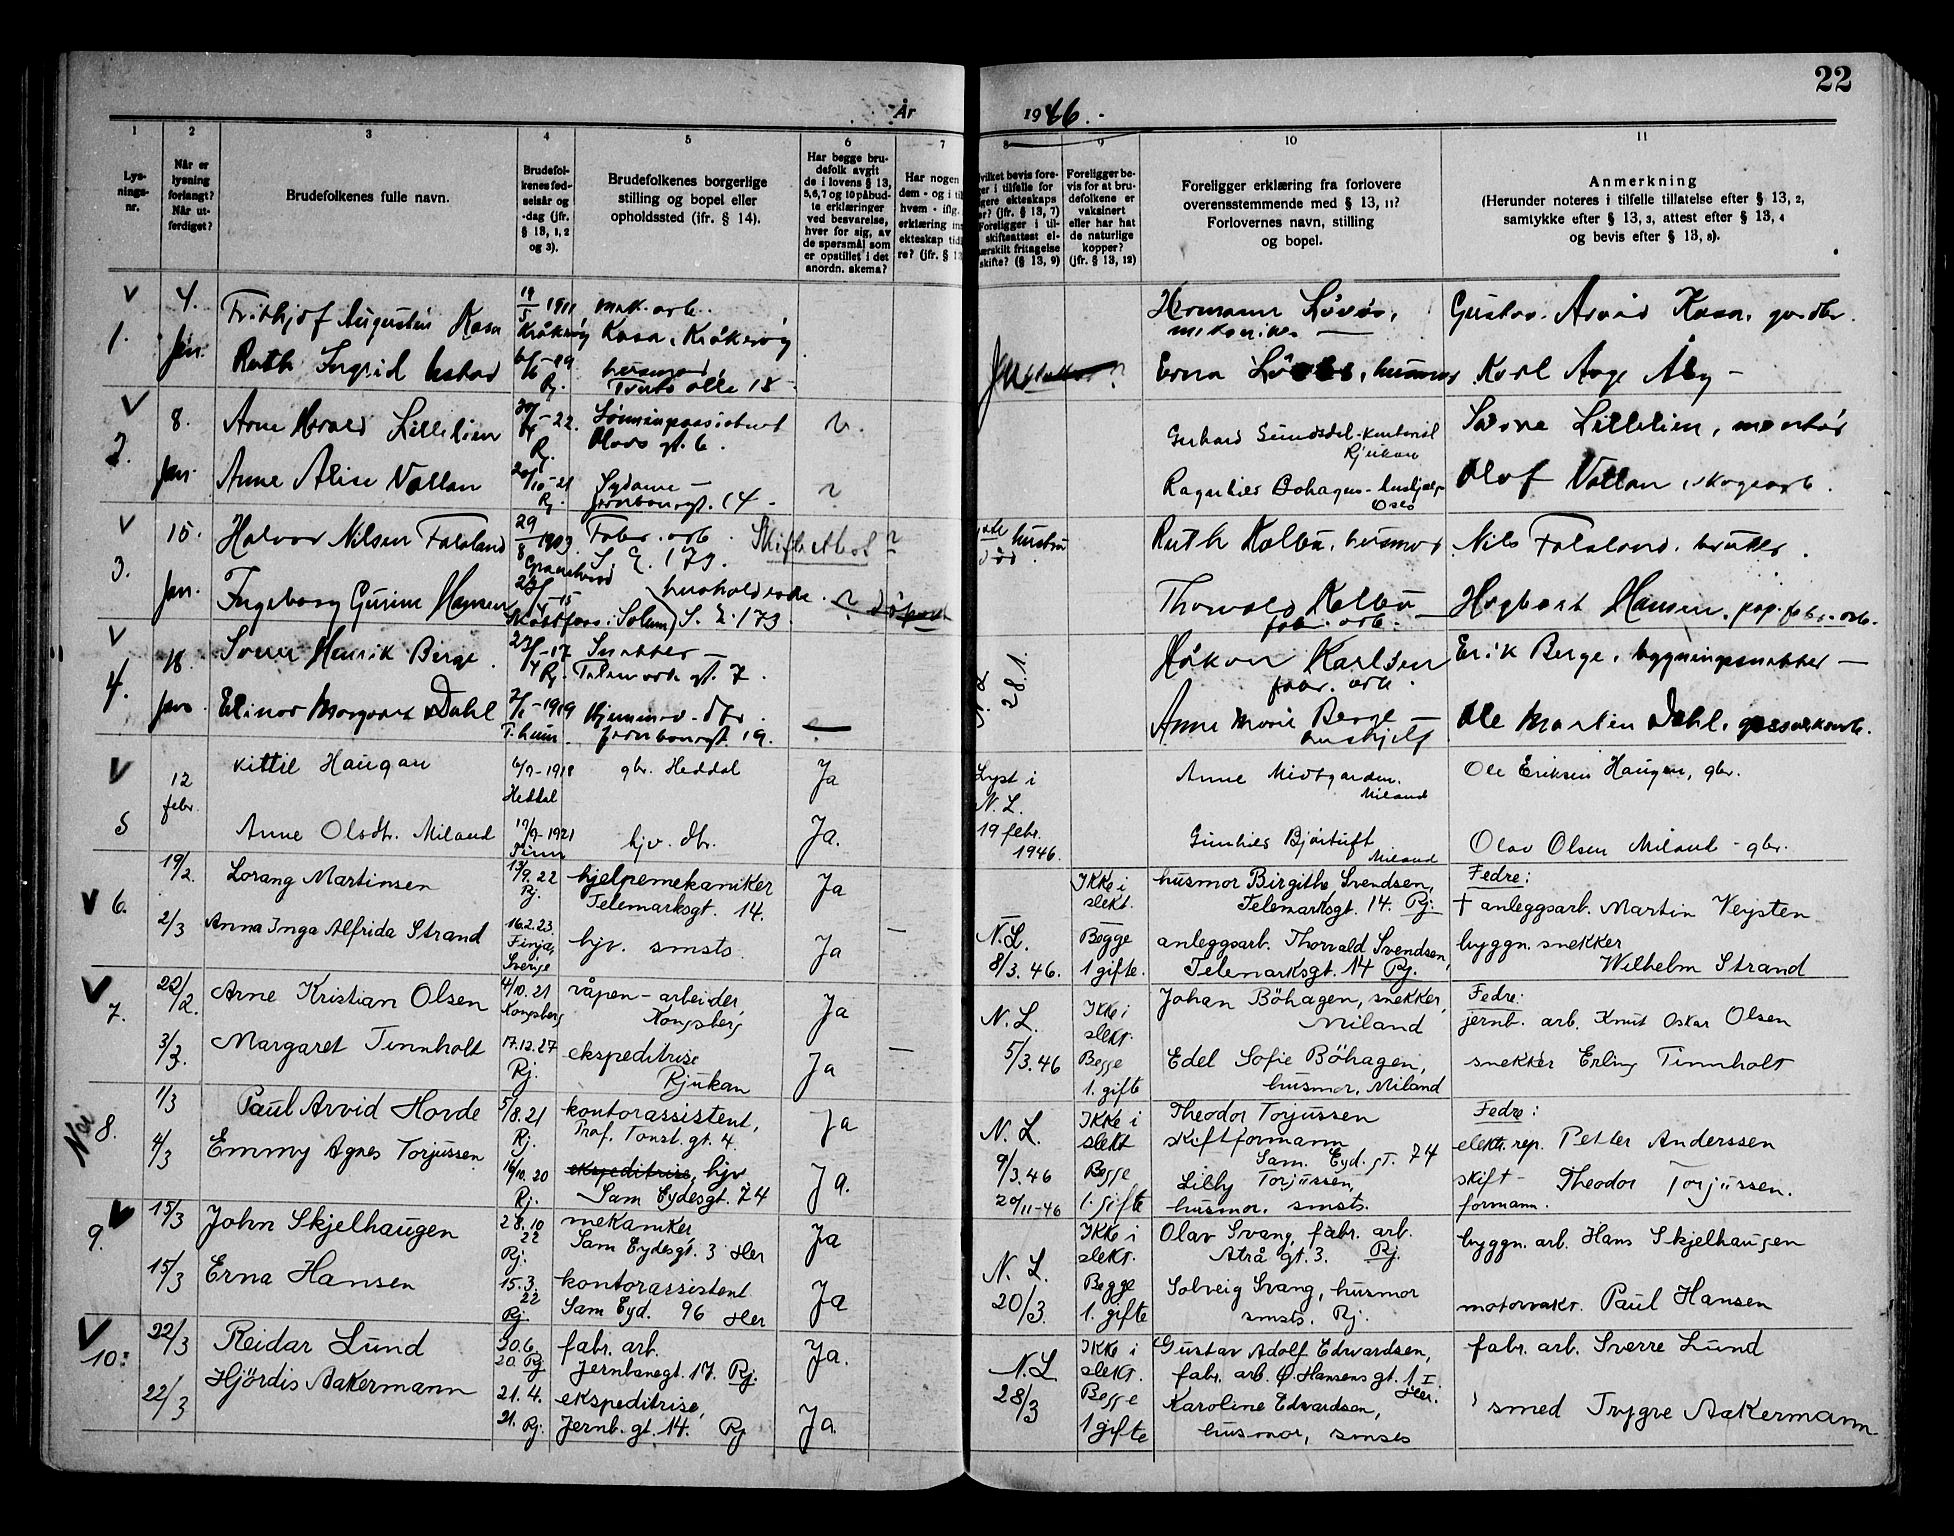 22
År 1946.
1
Lysningsnr.
2
Når er lysning forlangt? Når utferdiget?
3
Brudefolkenes fulle navn.
4
Brudefolkenes fødselsår og -dag (jfr. § 13, 1, 2 og 3).
5
Brudefolkenes borgerlige stilling og bopel eller opholdssted (ifr. § 14).
6
Har begge brudefolk avgit de i lovens § 13, 5,6,7 og 10 påbudte erklæringer ved besvarelse, hver for sig, av de spørsmål som er opstillet i det anordn. skema?
7
Har nogen
dem - og i til
hvem - iflg.
erklæring
ekteskap tid
re? (jfr. § 13
8
vilket bevis fore-
ger i tilfelle for
gere ekteskaps
er? (jfr. § 13, 7)
Foreligger i til-
skifteattest el-
ærskilt fritagelse
skifte? (§ 13, 9)
9
Foreligger bevis for at brudefolkene er vaksinert eller har hat de naturlige kopper? (jfr. § 13, 12)
10
Foreligger erklæring fra forlovere overensstemmende med § 13, 11? Forlovernes navn, stilling og bopel.
11
Anmerkning
(Herunder noteres i tilfelle tillatelse efter § 13, 2, samtykke efter § 13, 3, attest efter § 13, 4 og bevis efter § 13, 8).
1.
4. Jan.
Frithjof Augustin Kasa
1911 mek. arb.
Kråkerøy Kasa, Kråkerøy
Ruth Ingrid
Rj.
18
Hermann
Gustav Arvid Kasa, gårdbr.
Erna husmor
Karl Aage Åby
2.
8. Jan.
Arne Harald Lillelien
30/ -22. Rj.
Lønningsassistent
Olavs gt. 6.
Gerhard
Rjukan
Lillelien, montør
Anne Alise Vollan
20/10-21 Rj.
Sydame
Jernbanegt. 14
Ragnhild Bøhagen
Olaf Vollan, skogsarb.
3.
15. Jan.
Halvor Nilsen Falsland
29/8 1903
Fabr. arb.
S. E. 173.
Skifteattest ?
hustru
død
Ruth Kalbu, husmor
Nils Falsland
Ingeborg Gurine Hansen
-15
Solum) S. E. 173.
Thorvald Kalbu
fabr. arb.
Hagbart Hansen, pap. fabr. arb.
4.
18. Jan.
Sverre Henrik Berge
23/4-17 Rj.
Snekker
Telemarksgt. 7.
28.1.
Håkon Karlsen
fabr. arb.
Erik Berge, bygningssnekker
Elinor Margaret Dahl
1919
Hjemmev. dtr.
Jernbanegt. 19.
Anne Marie Berge
hushjelp
Ole Martin Dahl
5
12 febr.
Kittil Haugan
6/9-1918 Heddal
gbr. Heddal
Ja
Lyst i N. L.
19 febr. 1946.
Anne Midtgarden.
Miland
Ole Eriksen Haugen, gbr.
Anne Olsdtr. Miland
19/9-1921 Tinn
hjv. dtr.
Ja.
Gunhild Bjørtuft
Miland
Olav Olsen Miland - gbr.
6.
19/2.
Lorang Martinsen
13/9.22 Rj.
hjelpemekaniker
Telemarksgt. 14.
Ja
Ikke i slekt.
husmor Birgithe Svendsen,
Telemarksgt. 14. Rj.
Fedre:
† anleggsarb. Martin Vejsten
2/3
Anna Inga Alfrida Strand
16.2.23. Finja, Sverige
hjv. smsts.
Ja
N.L.
8/3.46.
Begge 1 gifte.
anleggsarb. Thorvald Svendsen,
Telemarksgt. 14 Rj.
byggn. snekker
Wilhelm Strand
7.
22/2.
Arne Kristian Olsen
4/10.21 Kongsberg
våpen-arbeider,
Kongsberg
Ja
N. L.
Ikke i slekt.
Johan Böhagen, snekker,
Miland
Fedre:
jernb. arb. Knut Oskar Olsen
3/3.
Margaret Tinnholt
17.12.27 Rj.
ekspeditrise
Rjukan
Ja
5/3.46
Begge 1. gifte
Edel Sofie Böhagen,
husmor, Miland
snekker Erling Tinnholt
Nei
8.
1/3
Paul Arvid Hovde
5/8.21 Rj.
kontorassistent,
Prof. Tonst. gt. 4.
Ja
N. L.
Ikke i slekt
Theodor Torjussen
skiftformann
Sam. Eyd. gt. 74
Fedre:
elektr. rep. Petter Anderssen
4/3
Emmy Agnes Torjussen
16/10.20 Rj.
ekspeditrise, hjv
Sam Eydesgt. 74
Ja.
9/3.46
20/11-46
Begge 1. gifte
Lilly Torjussen,
husmor, smsts.
skift-formann. Theodor Torjussen.
9.
15/3
John Skjelhaugen
28.10 22 Rj.
mekaniker,
Sam Eydesgt. 3 Her
Ja
N. L.
Ikke i slekt.
Olav Svang, fabr. arb.
Atrå gt. 3. Rj.
byggn. arb. Hans Skjelhaugen
15/3
Erna Hansen
15.3. 22 Rj.
kontorassistent
Sam Eyd. 96 Her
Ja
20/3.
Begge 1. gifte
Solveig Svang, husmor
smsts. Rj.
motorvakt. Paul Hansen
10:
22/3
Reidar Lund
30.6. 20. Rj.
fabr. arb.
Jernbanegt. 17. Rj.
Ja.
N. L
Ikke i slekt.
Gustav Adolf Edvardsen,
fabr. arb. Ø. Hansens gt. 1 I
Her.
fabr. arb. Sverre Lund
22/3
Hjördis Aakermann
21.4. 21. Rj.
ekspeditrise,
Jernb. gt. 14. Rj
Ja.
28/3
Begge 1 gifte
Karoline Edvardsen,
husmor, smsts
smed Trygve Aakermann